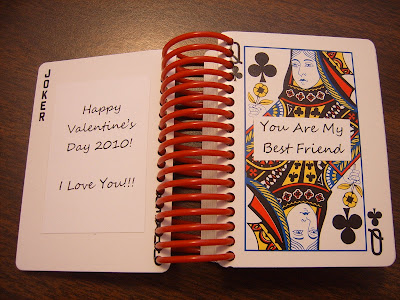 JOKER
Happy
Valentine's
Day 2010!
I Love You!!!
Q
You Are My
Best Friend
Q